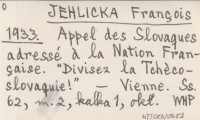 JEHLICKA François
1933. Appel des Slovaques
adressé à la Nation Fran-
çaise. "Divisez la Tchéco-
slovaquie!" — Vienne. Ss.
62, m. 2, kalba 1, okl. WHP